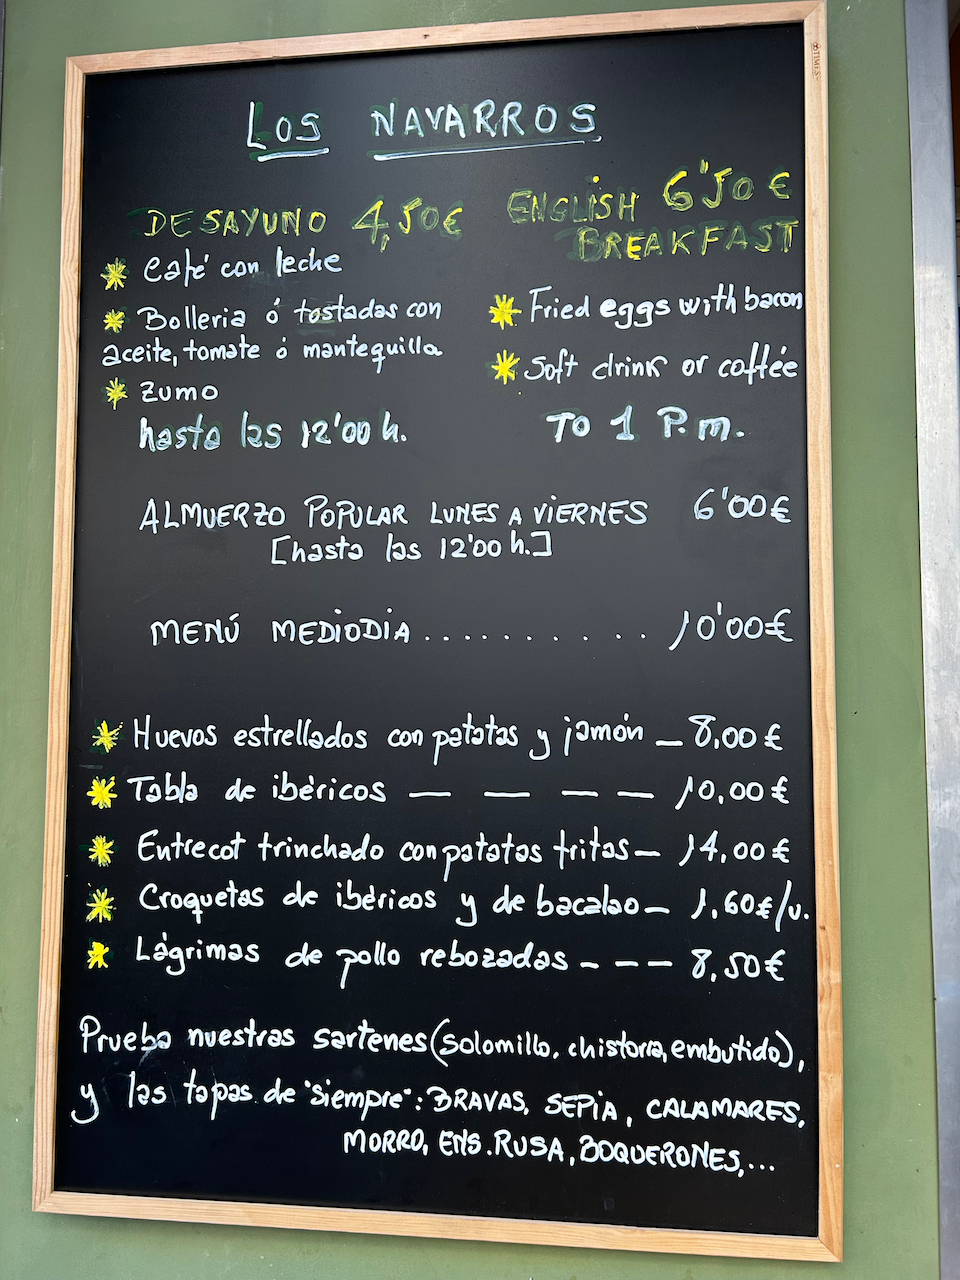 LOS NAVARROS
DESAYUNO 4,50€
* Café con leche
* Bolleria ó tostadas con
aceite, tomate ó mantequilla
* Zumo
hasta las 12'00 h.
ENGLISH 6'50€
BREAKFAST
* Fried eggs with bacon
* Soft drink or coffée
TO 1 P.m.
ALMUERZO POPULAR LUNES A VIERNES 6'00€
[hasta las 12'00 h.]
MENÚ MEDIODIA........... 10'00€
* Huevos estrellados con patatas y jamón — 8,00€
* Tabla de ibéricos — — — — 10,00€
* Entrecot trinchado con patatas fritas — 14,00€
* Croquetas de ibéricos y de bacalao — 1,60€/u.
* Lágrimas de pollo rebozadas - - - - 8,50€
Prueba nuestras sartenes (solomillo, chistorra, embutido),
y las tapas de "siempre": BRAVAS, SEPIA, CALAMARES,
MORRO, ENS. RUSA, BOQUERONES,...